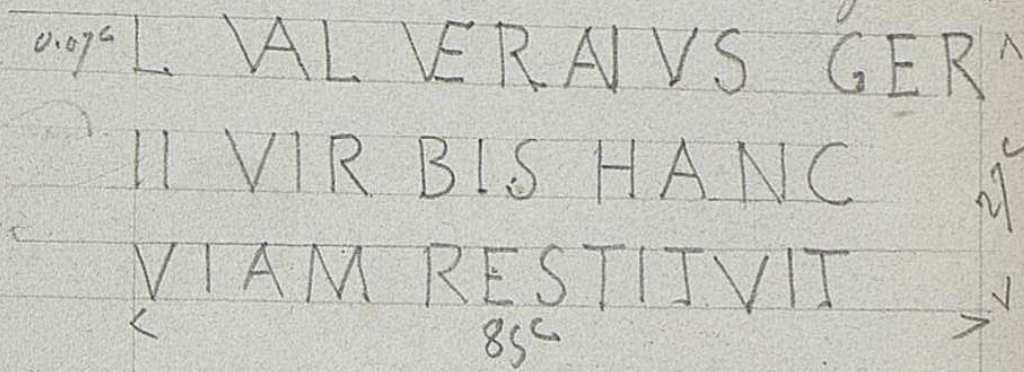 0.07c L VAL VERANVS GER
II VIR BIS HANC
27c
VIAM RESTITVIT
85c